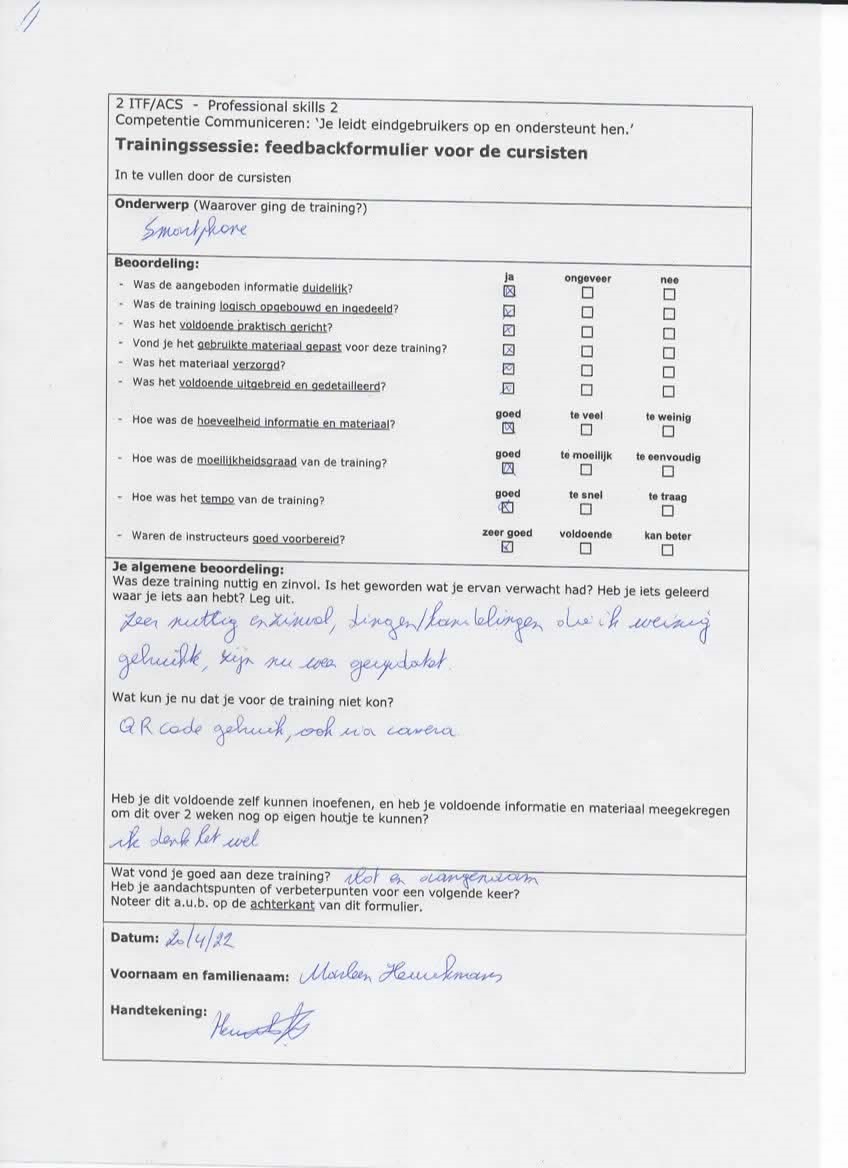 2 ITF/ACS - Professional skills 2
Competentie Communiceren: ‘Je leidt eindgebruikers op en ondersteunt hen.’
Trainingssessie: feedbackformulier voor de cursisten
In te vullen door de cursisten
Onderwerp (Waarover ging de training?)
Smartphone
Beoordeling: ja ongeveer nee
- Was de aangeboden informatie duidelijk? ☒ ☐ ☐
- Was de training logisch opgebouwd en ingedeeld? ☒ ☐ ☐
- Was het voldoende praktisch gericht? ☒ ☐ ☐
- Vond je het gebruikte materiaal gepast voor deze training? ☒ ☐ ☐
- Was het materiaal verzorgd? ☒ ☐ ☐
- Was het voldoende uitgebreid en gedetailleerd? ☒ ☐ ☐
goed te veel te weinig
- Hoe was de hoeveelheid informatie en materiaal? ☒ ☐ ☐
goed te moeilijk te eenvoudig
- Hoe was de moeilijkheidsgraad van de training? ☒ ☐ ☐
goed te snel te traag
- Hoe was het tempo van de training? ☒ ☐ ☐
zeer goed voldoende kan beter
- Waren de instructeurs goed voorbereid? ☒ ☐ ☐
Je algemene beoordeling:
Was deze training nuttig en zinvol. Is het geworden wat je ervan verwacht had? Heb je iets geleerd
waar je iets aan hebt? Leg uit.
Zeer nuttig en zinvol, dingen/handelingen die ik weinig
gebruikte, zijn nu weer geupdatet.
Wat kun je nu dat je voor de training niet kon?
QR code gebruik, ook via camera
Heb je dit voldoende zelf kunnen inoefenen, en heb je voldoende informatie en materiaal meegekregen
om dit over 2 weken nog op eigen houtje te kunnen?
ik denk het wel
Wat vond je goed aan deze training? vlot en aangenaam
Heb je aandachtspunten of verbeterpunten voor een volgende keer?
Noteer dit a.u.b. op de achterkant van dit formulier.
Datum: 20/4/22
Voornaam en familienaam: Marleen
Handtekening: